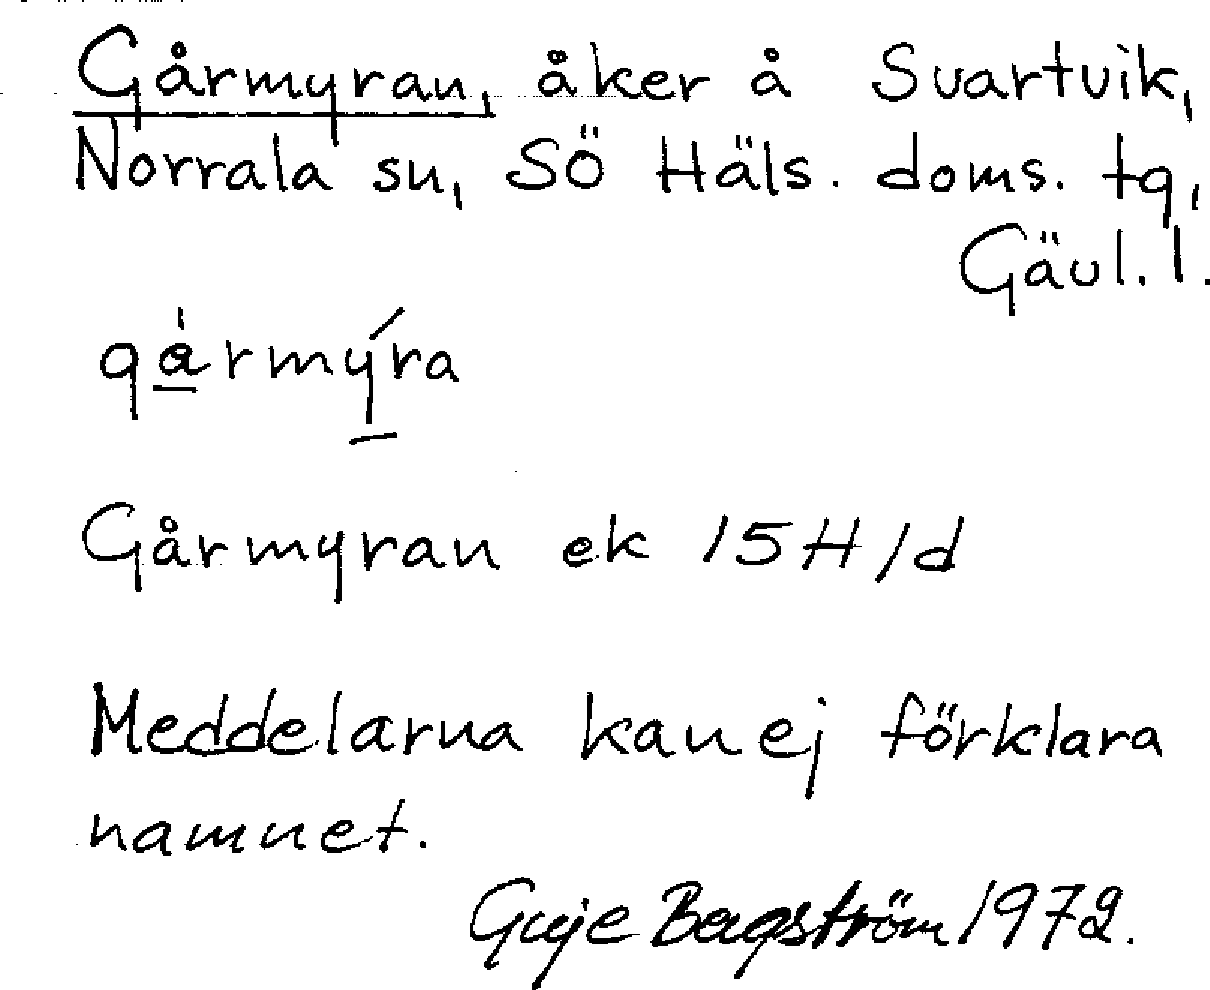 Gårmyran, åker å Svartvik,
Norrala sn, SÖ Häls. doms. tg,
Gävl. l.
gårmýra
Gårmyran ek 15H/d
Meddelarna kan ej förklara
namnet.
Bergström 1972.